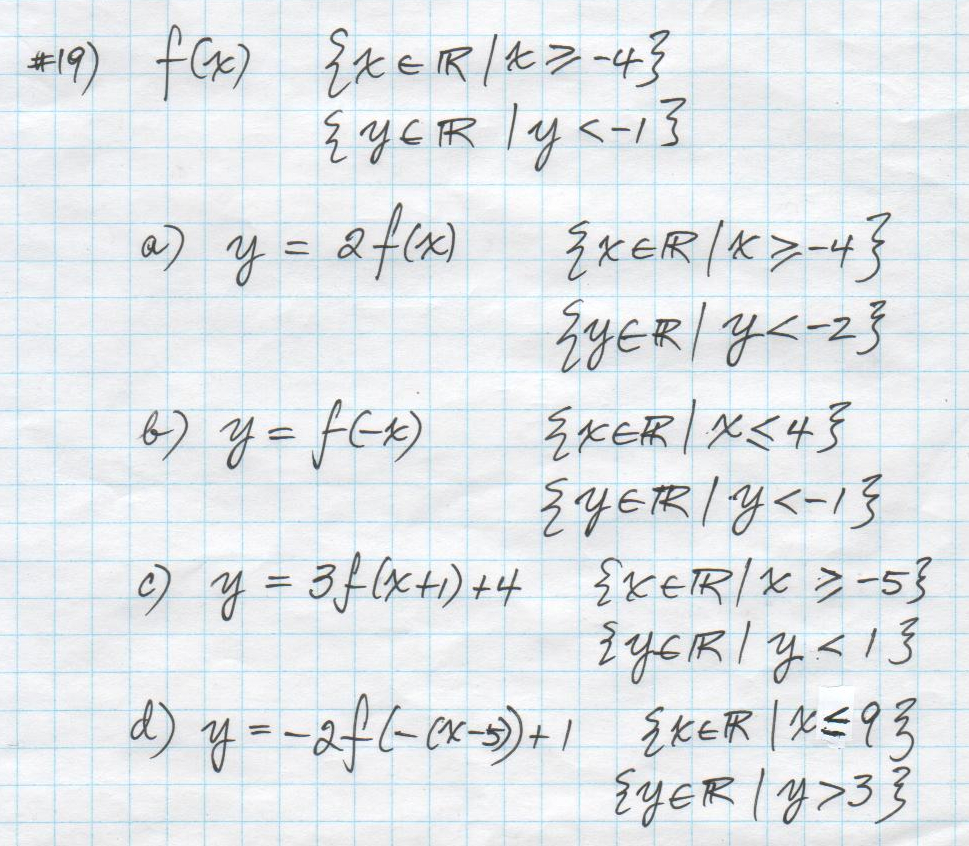 #19) f(x) {x ∈ ℝ | x ≥ -4}
{y ∈ ℝ | y < -1}
a) y = 2f(x) {x ∈ ℝ | x ≥ -4}
{y ∈ ℝ | y < -2}
b) y = f(-x) {x ∈ ℝ | x ≤ 4}
{y ∈ ℝ | y < -1}
c) y = 3f(x+1)+4 {x ∈ ℝ | x ≥ -5}
{y ∈ ℝ | y < 1}
d) y = -2f(-(x-5))+1 {x ∈ ℝ | x ≤ 9}
{y ∈ ℝ | y > 3}